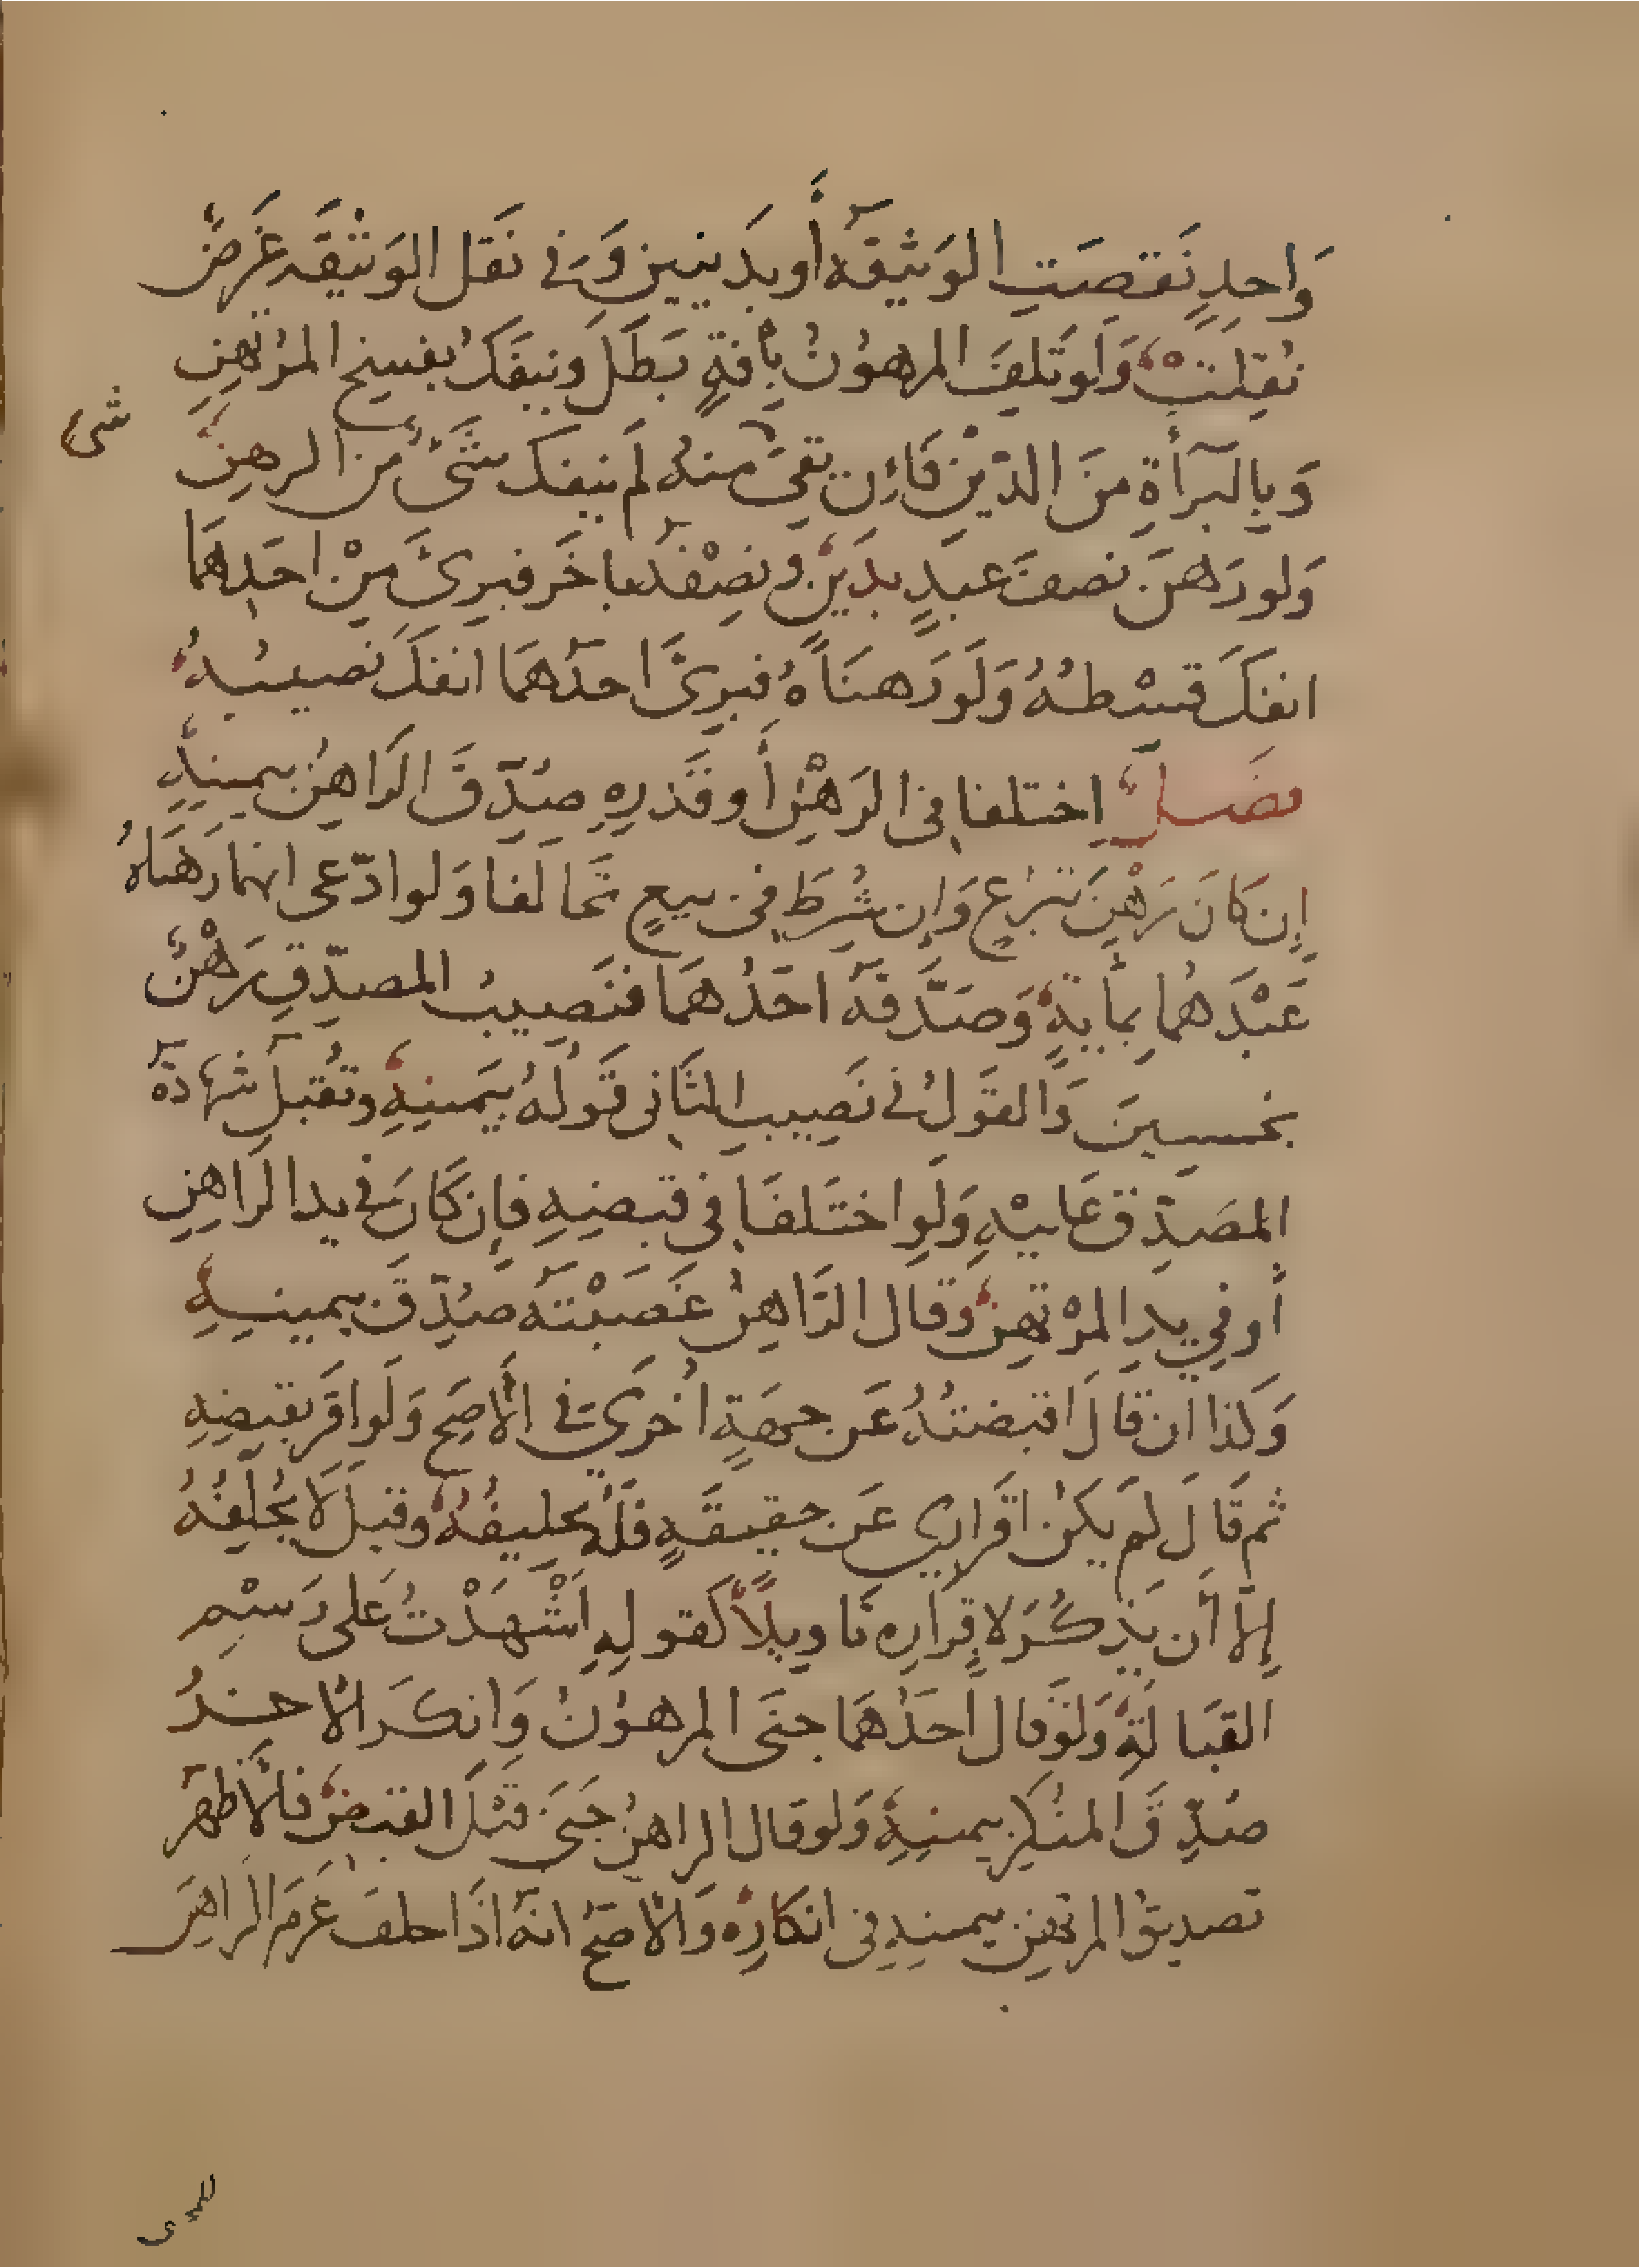 وَاحِدٍ نَقَصَتِ الوَثِيقَةُ أَو بدَينَينِ وَفي نَقلِ الوَثيقَةِ غَرَضٌ
نُقِلَتْ وَلَو تَلِفَ المرهُونُ بِأفةٍ بَطَلَ وينفَكُ بفسخِ المُرتَهِنِ
وَبِالبَرَأَةِ مِنَ الدَّيْنِ فَإِن بَقِيَ مِنهُ لَم ينفك شَئٌ مِنَ الرهنِ
شئ
وَلو رَهَنَ نصفَ عَبدٍ بدَيْنٍ وَنصْفَهُ بآخَر فبرِئَ مِنْ احَدِهمَا
انفَكَ قسْطُهُ وَلَو رَهنَاهُ فبرِئَ احدُهُمَا انفَكَ نَصِيبُهُ
فصَلٌ اِختلفا في الرَهْنِ أَو قَدرِهِ صُدِّقَ الرَاهِنُ بيمينهِ
إن كَانَ رَهْنَ تَبَرُعٍ وَإن شُرِطَ في بيعٍ تَحالَفا وَلو ادّعى انهما رَهَنَاهُ
عَبْدَهُما بِمأيةٍ وَصَدَّقَهُ احَدُهمَا فنَصِيبُ المصدِّقِ رَهْنٌ
بخمسينَ وَالقَولُ في نَصِيبِ الثَاني قَولُهُ بيَمينهِ وَتُقبلُ شهَادَةُ
المصَدِّقِ عَليْهِ وَلَوِ اختَلفَا في قَبضِهِ فَإن كَانَ في يدِ الرَاهِنِ
أَو في يدِ المرْتهنِ وَقال الرَّاهِنُ غَصَبْتَهُ صُدِّقَ بيمينِهِ
وَكَذا ان قالَ اقبضتُهُ عَن جهَةٍ اُخرَى في الأصَحِ وَلَو اقَرَ بقبضِهِ
ثم قَالَ لَم يكَنْ اقرَارِي عَن حقيقَةٍ فَلَهُ تحليفُهُ وَقيلَ لَا يُحَلِفُهُ
إلّا أن يَذكُرَ لاِقرَارِه تَاويلًا كَقولِهِ اَشْهَدْتُ عَلى رَسْمِ
القبَالَةِ وَلَو قال اَحَدُهمَا جنَى المرهُونُ وَانكَرَ الاخَرُ
صُدِّقَ المنُكِرُ بيمينهِ وَلو قال الراهِنُ جَنَى قَبْلَ القبضِ فَالأظهَرُ
تصديقُ المرتهنِ بيمينهِ في انكَارِه وَالأصَحُ انهُ اذَا حلفَ غَرِمَ الراهِنُ